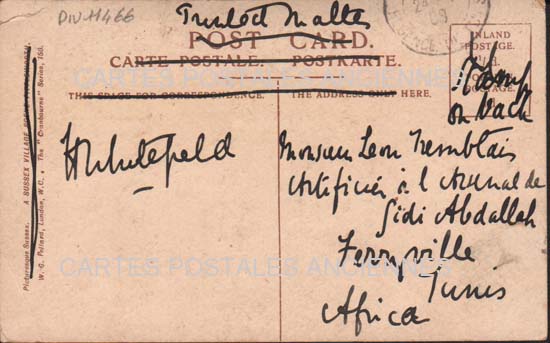 DIV-11466
Printed Matter
POST CARD.
CARTE POSTALE. POSTKARTE.
THIS SPACE FOR CORRESPONDENCE. THE ADDRESS ONLY HERE.
INLAND
POSTAGE.
Stamp
on back
POSTAGE.
08
H Whitefield
Monsieur Leon Tremblais
Artificier à l'Arsenal de
Sidi Abdallah
Ferryville
Tunis
Africa
Picturesque Sussex. A SUSSEX VILLAGE
W. G. Pelland, London, W.C. The "Cranbourne" Series, 150.
CARTES POSTALES ANCIENNES
CARTES POSTALES ANCIENNES